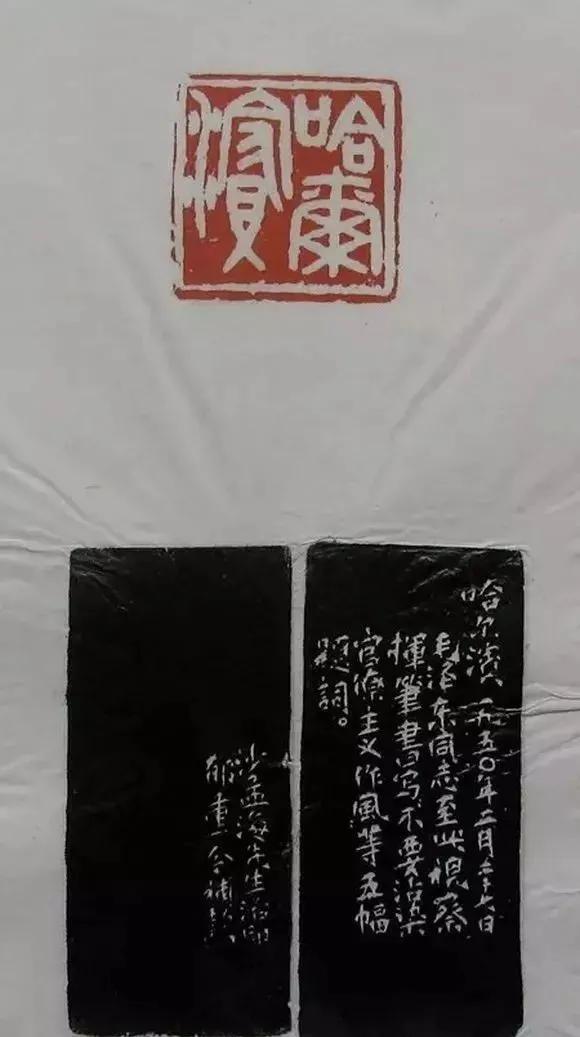 哈爾濱
哈尔滨 一九五〇年二月二十七日
毛泽东同志至此视察
挥笔书写不要沾染
官僚主义作风等五幅
题词。
沙孟海先生治印
郁重今补款